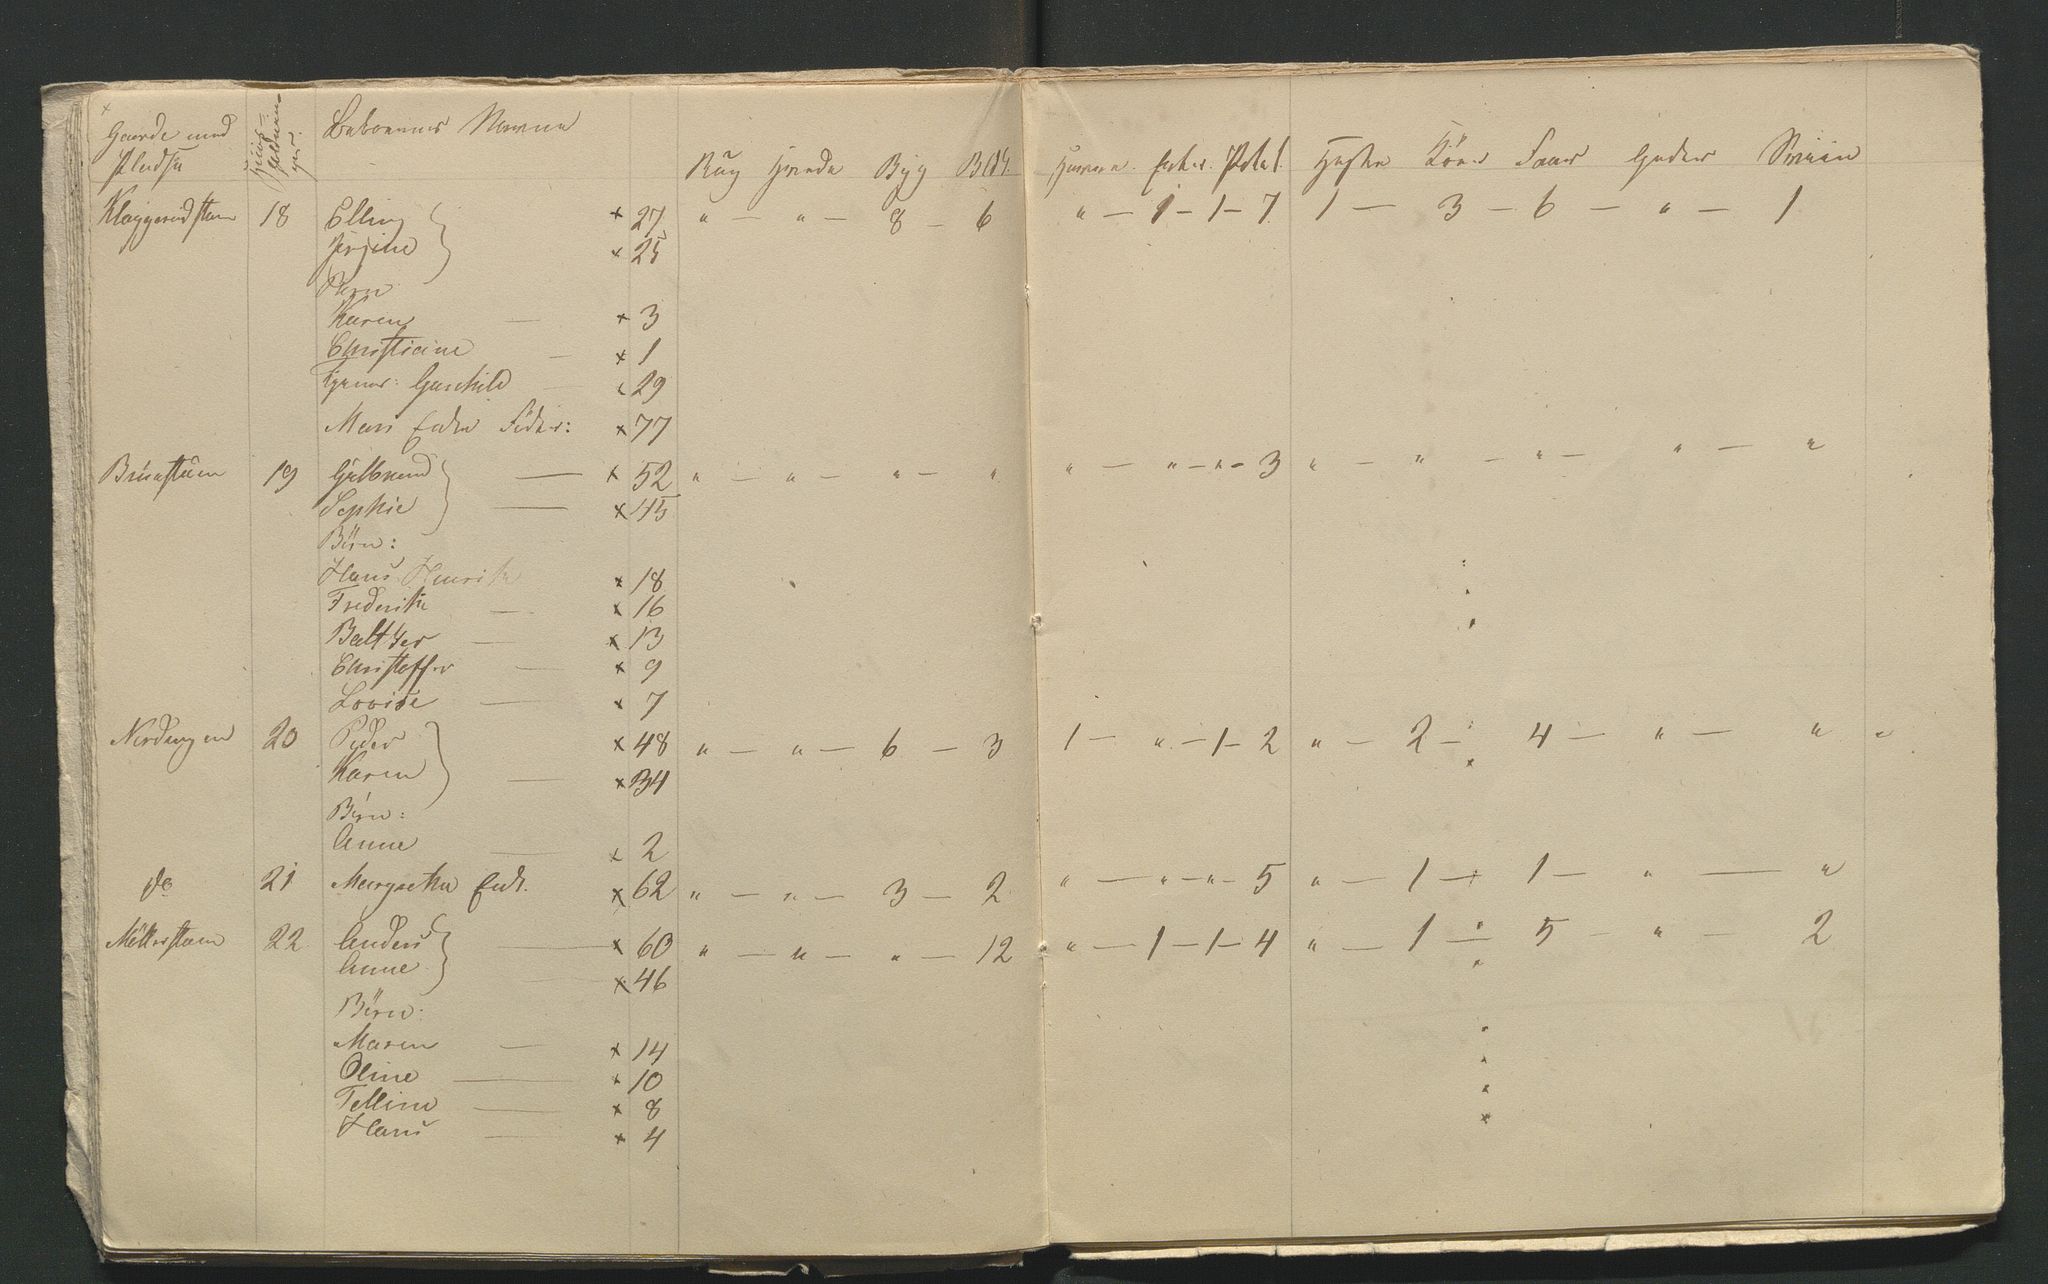 Gaarde med Pladse Huus-holdnin-ger. Beboernes Navne Rug Hvede Byg Bl:K. Havre. Erter. Potet. Heste Köer Faar Geder Sviin
Klaggerudstuen 18 Elling × 27 " — " — 8 — 6 " — 1 — 1 — 7 1 — 3 — 6 — " — 1
Jørgine × 25
Børn
Karen — × 3
Christiane — × 1
Tjener: Gunhild — × 29
Mari Enke Föder: × 77
Brustuen 19 Gulbrand — × 52 " — " — " — " " — " — " — 3 " — " — " — " — "
Sophie — × 45
Börn:
Hans Henrik × 18
Frederik — × 16
Baltzer — × 13
Christoffer — × 9
Lovise — × 7
Nordengen 20 Peder × 48 " — " — 6 — 3 1 — " — 1 — 2 " — 2 — 4 — " — "
Karen — × 34
Börn:
Anne — × 2
do 21 Margrethe Enk. × 62 " — " — 3 — 2 " — " — " — 5 " — 1 — 1 — " — "
Möllerstuen 22 Anders — × 60 " — " — " — 12 " — 1 — 1 — 4 " — 1 — 5 — " — 2
Anne × 46
Börn:
Maren — × 14
Oline — × 10
Telline — × 8
Hans — × 4